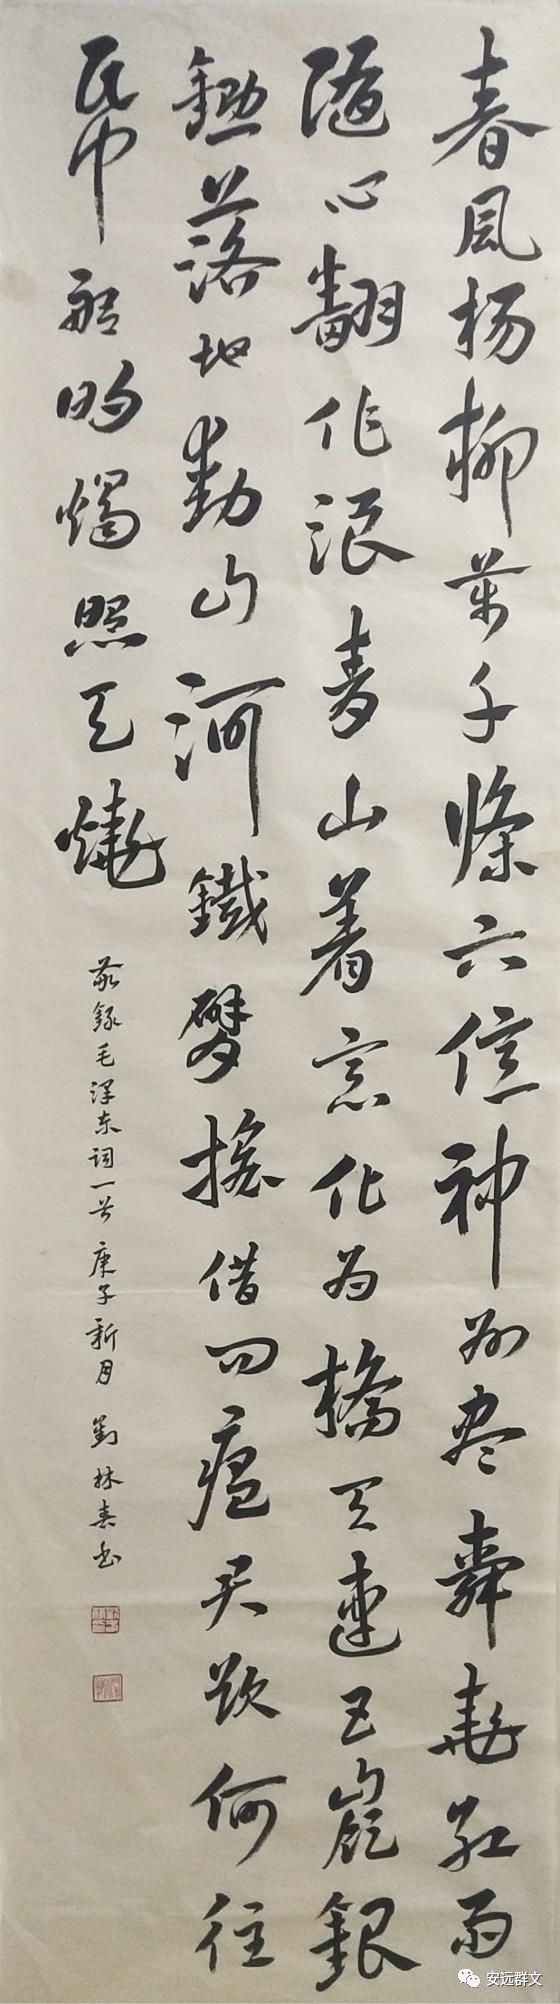 春風杨柳萬千條六億神州尽舜堯红雨
隨心翻作浪青山着意化为橋天連五嶺銀
鋤落地動山河鐵臂搖借问瘟君欲何往
帋船明燭照天燒
敬録毛泽东词一首 庚子新月 劉林春书
安远群文